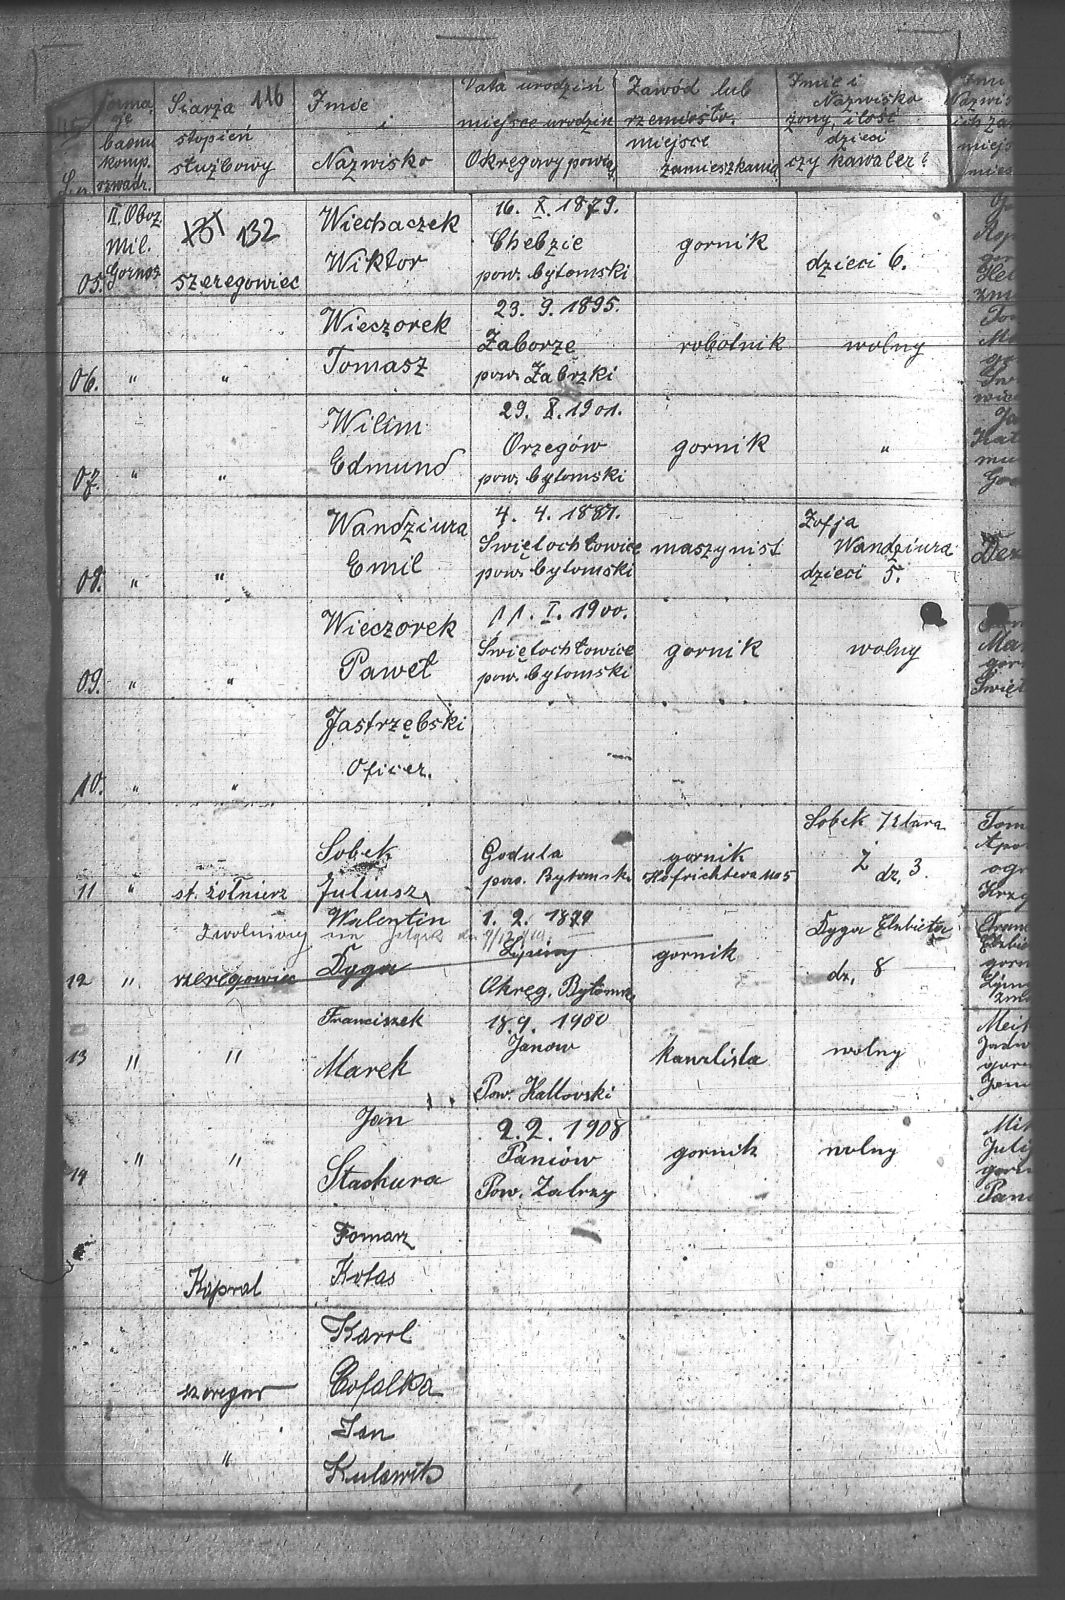 Siarża 116
stopień
służbowy
Imie
i
Nazwisko
Data urodzin
miejsce urodzin
Okręgowy powiat
Zawód lub
rzemiosło.
miejsce
zamieszkania
Imie i
Nazwisko
żony, ilość
dzieci
czy kawaler?
komp.
szwadr.
05.
II. Oboz
Mil.
Gornosz
132
szeregowiec
Wiechaczek
Wiktor
16. X. 1879.
Chebzie
pow. bytomski
gornik
dzieci 6.
06. " "
Wieczorek
Tomasz
23. 9. 1895.
Zaborze
pow. Zabrzki
robotnik
wolny
07. " "
Wilim
Edmund
29. X. 1901.
Orzegów
pow. bytomski
gornik
"
08. " "
Wandziura
Emil
4. 4. 1887.
Świętochłowice
pow. bytomski
maszynist
Zofja
Wandziura
dzieci 5.
09. " "
Wieczorek
Paweł
11. I. 1900.
Świętochłowice
pow. bytomski
gornik
wolny
10. " "
Jastrzębski
Oficer.
11 "
st. żołnierz
Sobek
Juliusz
Godula
pow. Bytomsk.
gornik
Hofrichtera No 5
Sobek Klara
dz. 3.
12 "
Zwolniony
szeregowiec
Walentin
Dyga
1. 2. 1874
Lipiny
Okręg. Bytomsk.
gornik
Dyga Elżbieta
dz. 8
13 " "
Franciszek
Marek
18. 9. 1900
Janow
Pow. Kattovski
kanzlista
wolny
14 " "
Jan
Stachura
2. 2. 1908
Paniów
Pow. Zabrzy
gornik
wolny
Kapral
Tomarz
Kotas
szeregow
Karol
Cofalka
"
Jan
Kulawik